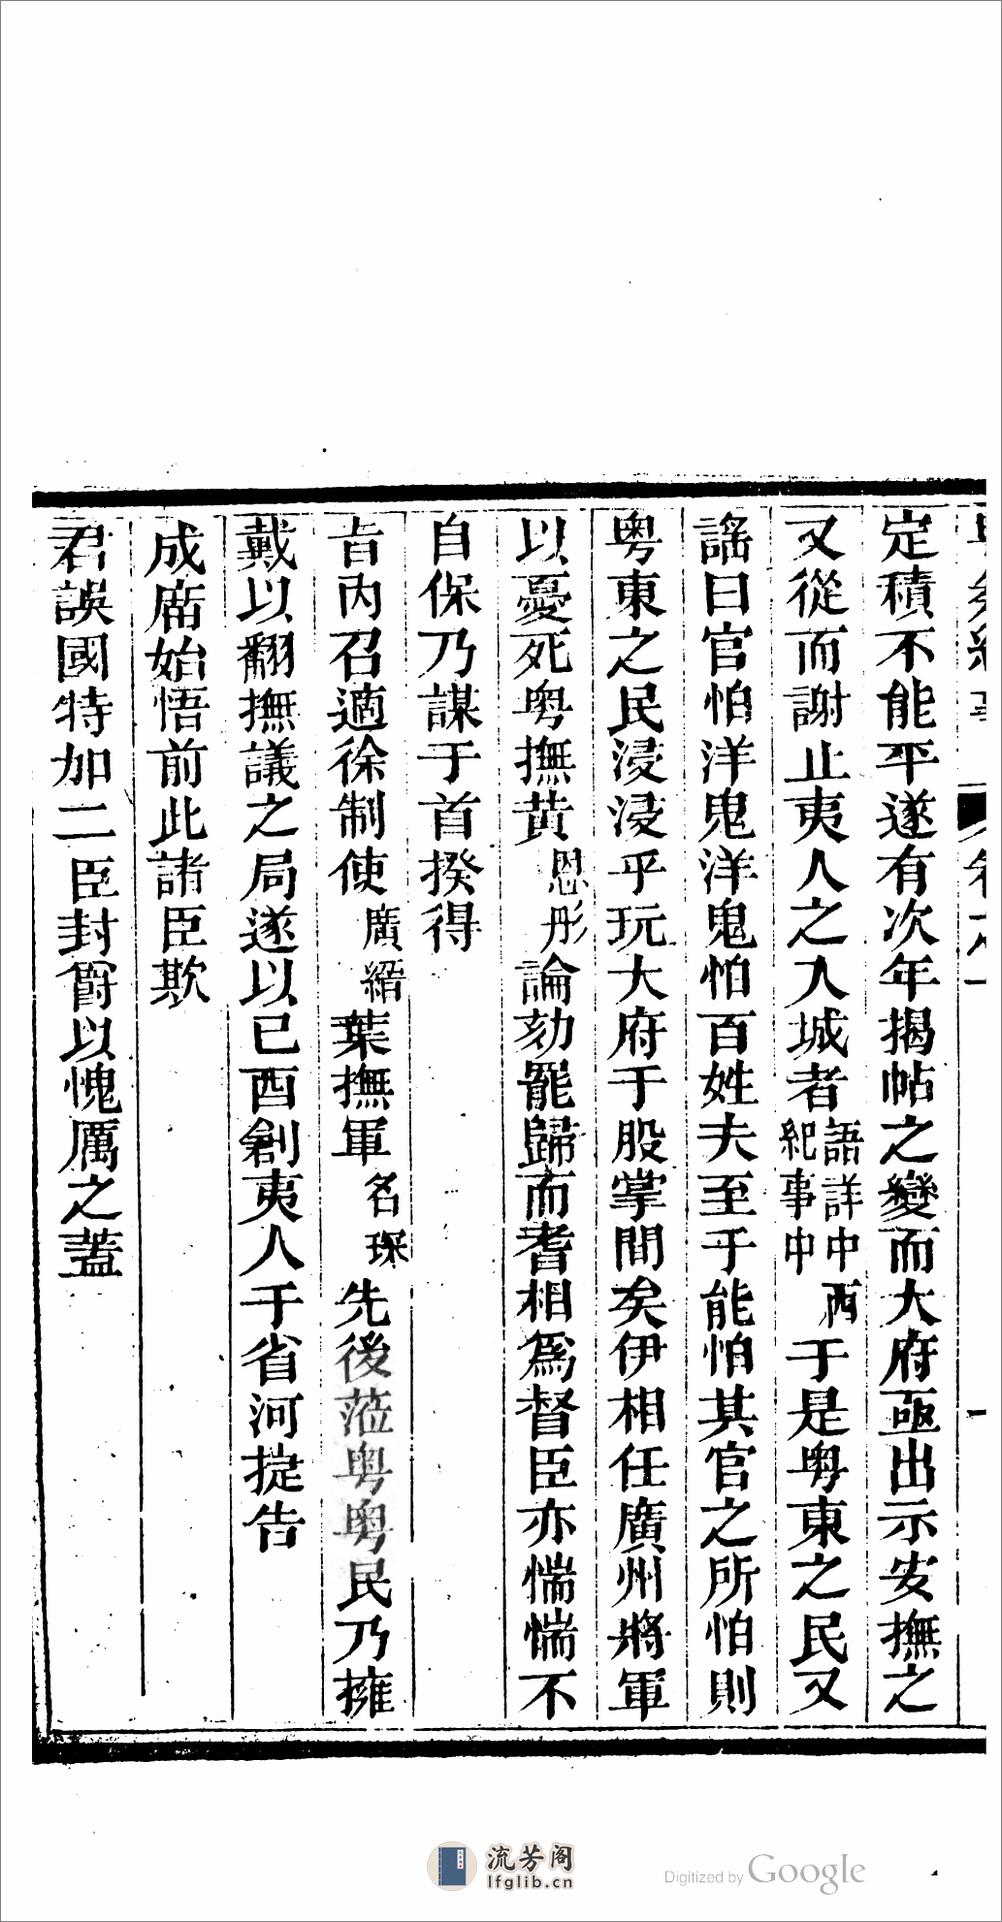 定積不能平遂有次年揭帖之變而大府亟出示安撫之
又從而謝止夷人之入城者語詳中西紀事中于是粤東之民又
謠曰官怕洋鬼洋鬼怕百姓夫至于能怕其官之所怕則
粤東之民浸浸乎玩大府于股掌間矣伊相任廣州將軍
以憂死粤撫黄恩彤論劾罷歸而耆相爲督臣亦惴惴不
自保乃謀于首揆得
旨内召適徐制使廣縉葉撫軍名琛先後蒞粤粤民乃擁
戴以翻撫議之局遂以已酉創夷人于省河捷告
成廟始悟前此諸臣欺
君誤國特加二臣封爵以愧厲之蓋
流芳阁
lfglib.cn
Digitized by Google